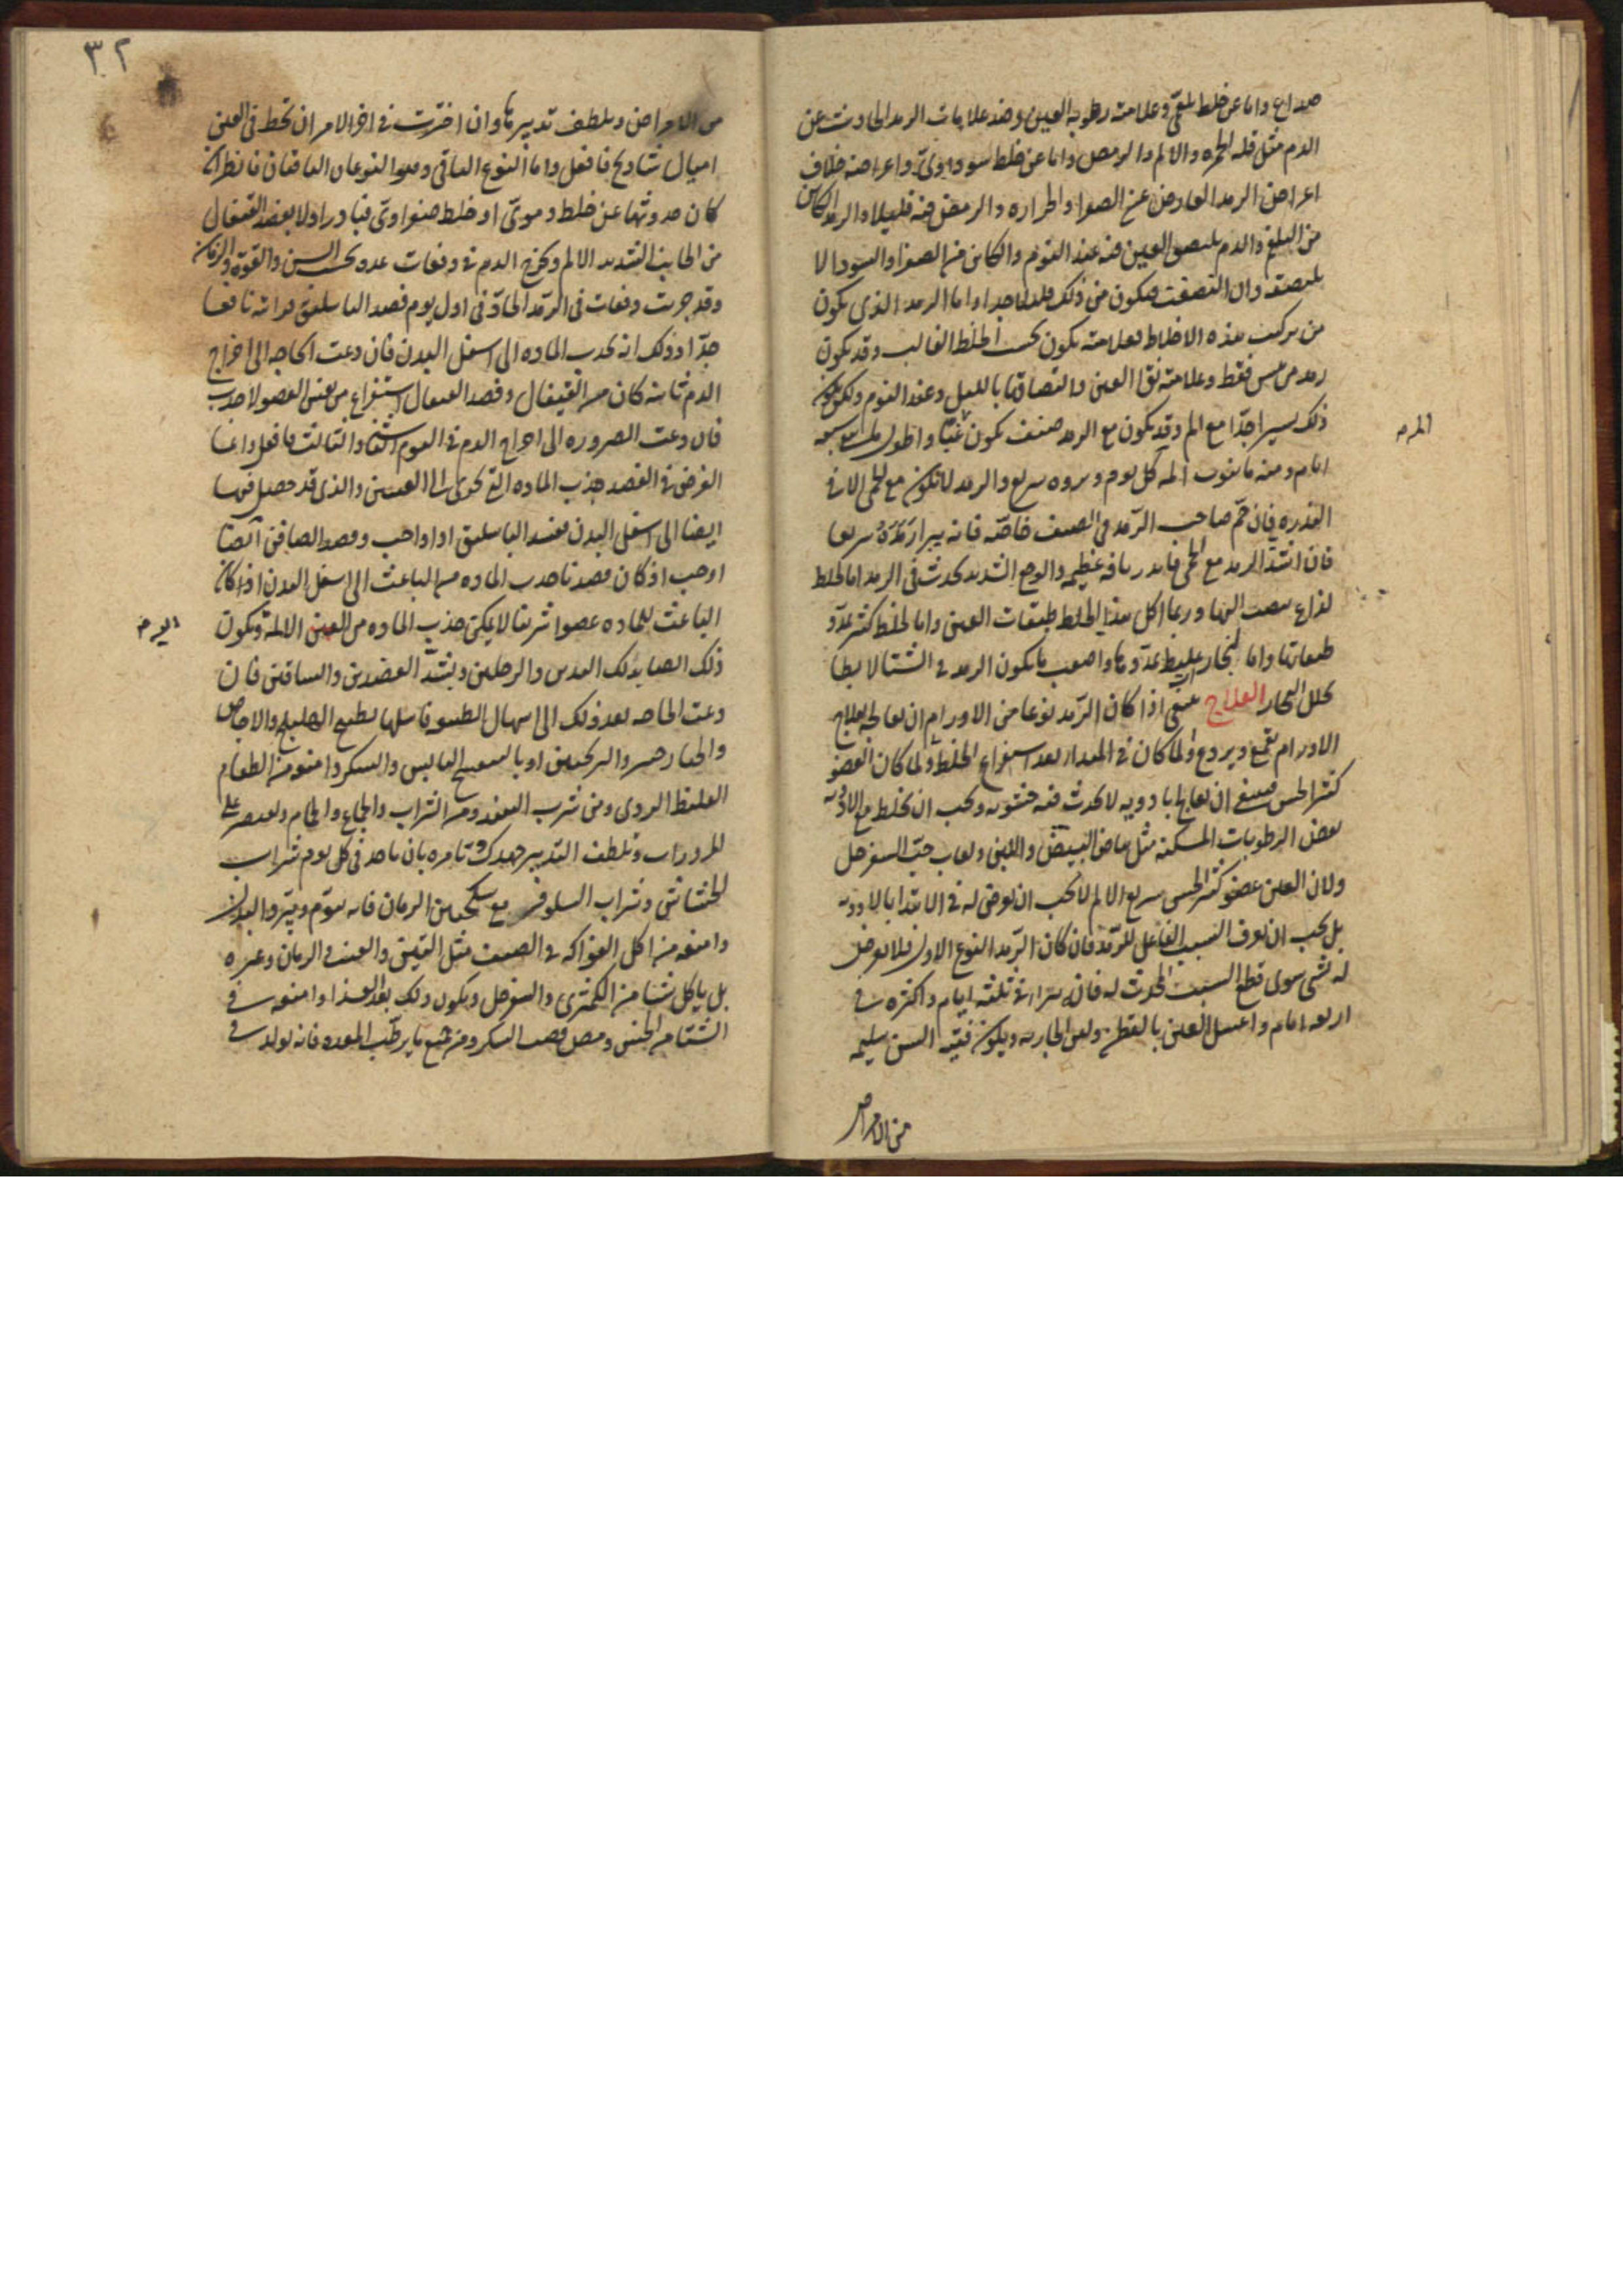 صداع واما عن خلط بلغمي وعلامته رطوبه العين وضد علامات الرمد الحادث عن
الدم مثل قله الحمره والالم والرمص واما عن خلط سوداوي واعراضه خلاف
اعراض الرمد العارض عن الصفرا والحراره والرمص فيه قليلا والرمد الكاين
من البلغم والدم يلتصق العين منه عند النوم والكاين من الصفرا والسودا لا
يلتصق وان التصقت فيكون من ذلك قليلا جدا واما الرمد الذي يكون
من تركيب هذه الاخلاط فعلامته يكون بحسب الخلط الغالب وقد يكون
رمد من يبس فقط وعلامته نقا العين والتصاقها بالليل وعند النوم ولكن يكون
ذلك يسيرا جدا مع الم وقد يكون مع الرمد صنف يكون غبا واطول
ايام ومنه ما ينوب المه كل يوم وبروه سريع والرمد لا يكون مع الحمى الا في
الندره فان حم صاحب الرمد في الصيف خاصه فانه يبرا رمده سريعا
فان اشتد الرمد مع الحمى فانه رياضه عظيمه والوجع الشديد يحدث في الرمد اما لخلط
لذاع ينصب اليها وربما اكل هذا الخلط طبقات العين واما لخلط كثير يمدد
طبقاتها واما لبخار غليظ يمددها واصعب ما يكون الرمد في الشتا لابطا
تحلل البخار العلاج ينبغي اذا كان الرمد نوعا من الاورام ان يعالج بعلاج
الاورام بقمع ويردع ولما كان في المقدار بعد استفراغ الخلط ولما كان العضو
كثير الحس فينبغي ان يعالج بادويه لا يحدث فيه خشونه ويجب ان يخلط مع الادويه
بعض الرطوبات المسكنه مثل بياض البيض واللبن ولعاب حب السفرجل
ولان العين عضو كثير الحس سريع الالم لا يجب ان يعرض له في الابتدا بالادويه
بل يجب ان يعرف السبب الفاعل للرمد فان كان الرمد النوع الاول فلا يعرض
له بشي سوى قطع السبب المحدث له فان يبرا في ثلثه ايام واكثره في
اربعه ايام واغسل العين بالقطن ولبن الجاريه ويكون فتيه السن سليمه
من الامراض
٣٢
من الامراض ويلطف تدبيرها وان اخترت في اخر الامر ان تخط في العين
اميال شادنج فافعل واما النوع الباقي وهو النوعان الباقيان فانظر ان
كان حدوثهما عن خلط دموي او خلط صفراوي فبادر اولا بفصد القيفال
من الجانب الشديد الالم ويخرج الدم في دفعات عده بحسب السن والقوه والزمان
وقد جربت دفعات في الرمد الحاد في اول يوم فصد الباسليق فراته نافعا
جدا وذلك انه يجذب الماده الى اسفل البدن فان دعت الحاجه الى اخراج
الدم ثانيه كان من القيفال وفصد القيفال استفراغ من نفس العضو لا جذب
فان دعت الضروره الى اخراج الدم في اليوم الثاني والثالث فافعل وانما
الغرض في الفصد جذب الماده التي تجري الى العينين والذي قد حصل فيها
ايضا الى اسفل البدن ففصد الباسليق اذا واجب وفصد الصافن ايضا
اوجب اذ كان فصدنا جذب الماده من الباعث الى اسفل البدن اذا كان
الباعث للماده عضوا شريفا لا يمكن جذب الماده من العين الالمه ويكون
ذلك ايضا بدلك اليدين والرجلين وبشد العضدين والساقين فان
دعت الحاجه بعد ذلك الى اسهال الطبيعه فاسهلها بطبيخ الهليلج والاجاص
والخيارشنبر والترنجبين او بالبنفسج اليابس والسكر وامنعه من الطعام
الغليظ الردي ومن شرب النبيذ ومن الشراب والجماع والحمام وليقتصر على
المزورات وتلطف التدبير جهدك وتامره بان ياخذ في كل يوم شراب
الخشخاش وشراب النيلوفر مع سكنجبين الرمان فانه ينوم ويبرد البدن
وامنعه من اكل الفواكه في الصيف مثل التين والعنب والرمان وغيره
بل ياكل شيا من الكمثرى والسفرجل ويكون ذلك بعد الغذا وامنعه في
الشتا من الخس ومص قصب السكر ومن جميع ما يرطب المعده فانه يولد في